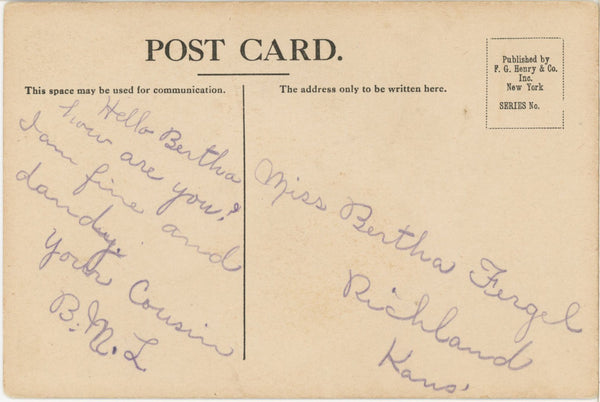 POST CARD.
This space may be used for communication.
The address only to be written here.
Published by
F. G. Henry & Co.
Inc.
New York
SERIES No.
Hello Bertha
how are you?
I am fine and
dandy.
Your Cousin
B. M. L
Miss Bertha Fergel
Richland
Kans.